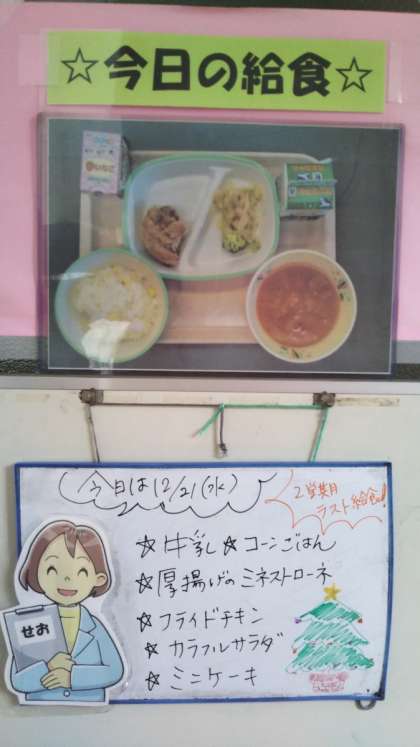 ☆今日の給食☆
今日は12/21(水)
2学期
ラスト給食!
☆牛乳 ☆コーンごはん
☆厚揚げのミネストローネ
☆フライドチキン
☆カラフルサラダ
☆ミニケーキ
せお